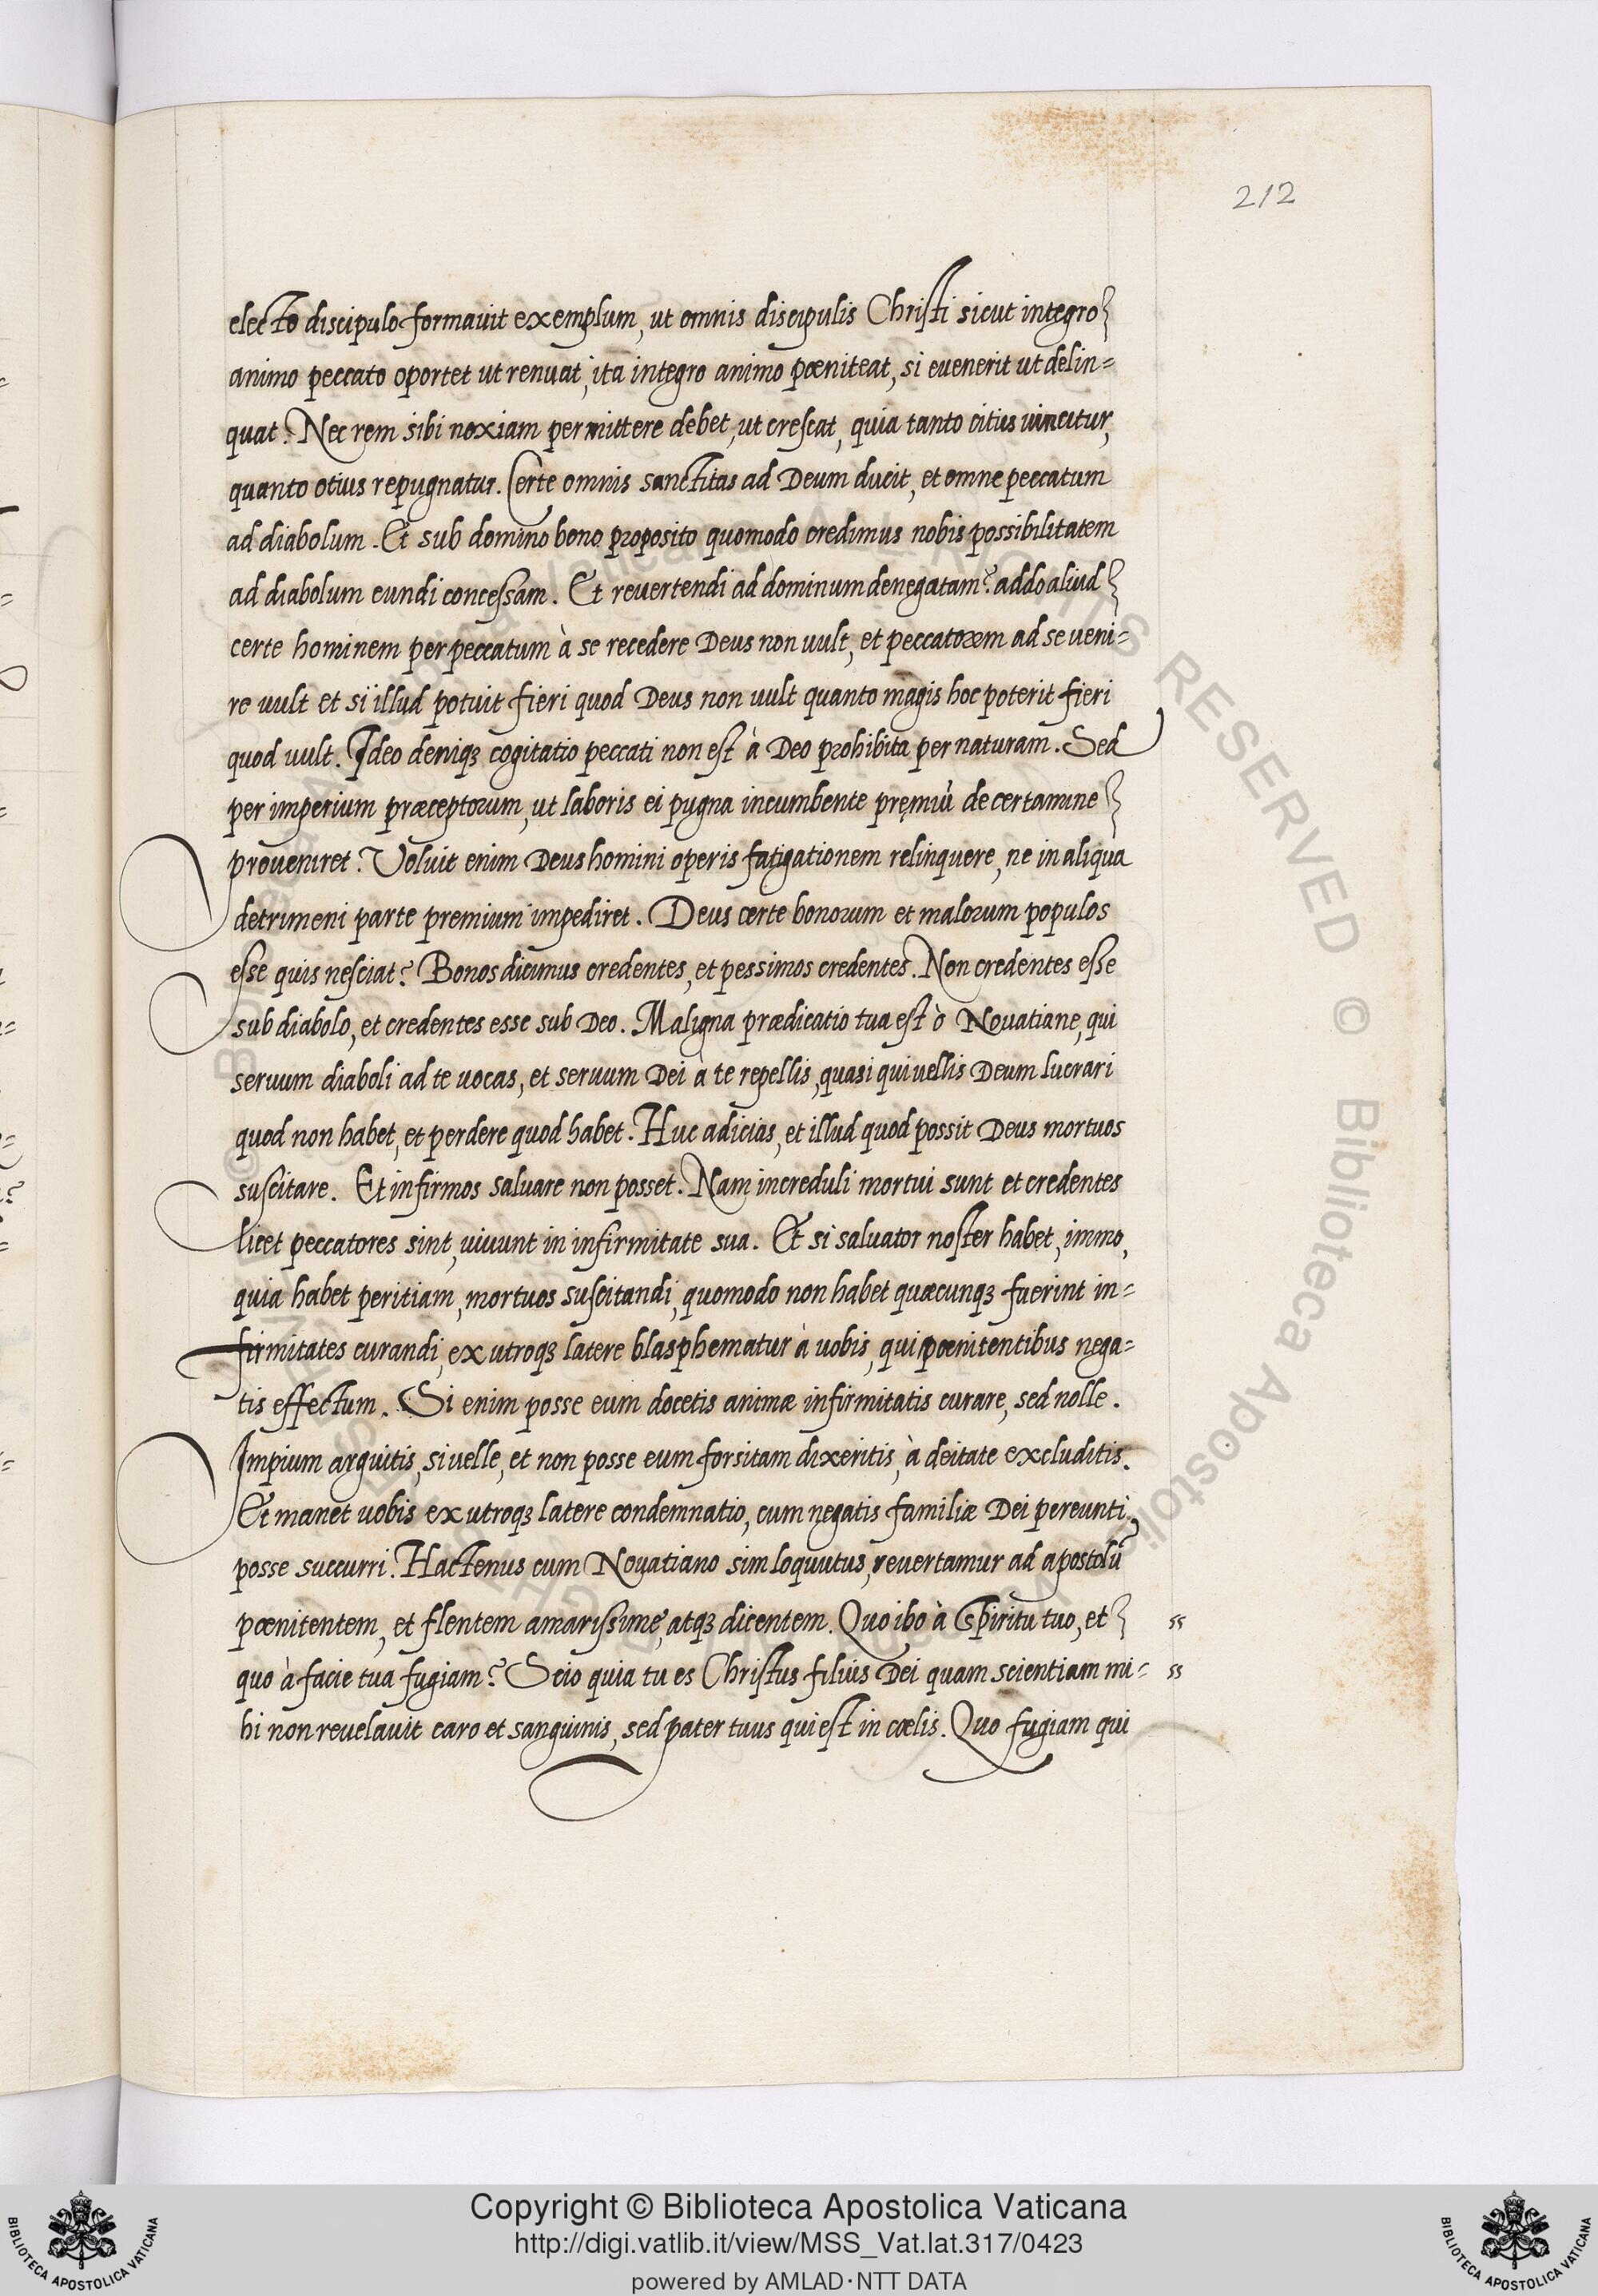 212
electo discipulo formauit exemplum, ut omnis discipulis Christi sicut integro
animo peccato oportet ut renuat, ita integro animo pœniteat, si euenerit ut delin=
quat. Nec rem sibi noxiam permittere debet, ut crescat, quia tanto citius uincitur,
quanto otius repugnatur. Certe omnis sanctitas ad Deum ducit, et omne peccatum
ad diabolum. Et sub domino bono proposito quomodo credimus nobis possibilitatem
ad diabolum eundi concessam. Et reuertendi ad dominum denegatam? addo aliud
certe hominem per peccatum à se recedere Deus non uult, et peccatorem ad se ueni=
re uult et si illud potuit fieri quod Deus non uult quanto magis hoc poterit fieri
quod uult. Ideo deniqꝫ cogitatio peccati non est à Deo prohibita per naturam. Sed
per imperium præceptorum, ut laboris ei pugna incumbente pręmiū de certamine
proueniret. Voluit enim Deus homini operis fatigationem relinquere, ne in aliqua
detrimeni parte premium impediret. Deus certe bonorum et malorum populos
esse quis nesciat? Bonos dicimus credentes, et pessimos credentes. Non credentes esse
sub diabolo, et credentes esse sub Deo. Maligna prædicatio tua est ò Nouatiane, qui
seruum diaboli ad te uocas, et seruum Dei à te repellis, quasi qui uellis Deum lucrari
quod non habet, et perdere quod habet. Huc adicias, et illud quod possit Deus mortuos
suscitare. Et infirmos saluare non posset. Nam increduli mortui sunt et credentes
licet peccatores sint, uiuunt in infirmitate sua. Et si saluator noster habet, immo,
quia habet peritiam, mortuos suscitandi, quomodo non habet quæcunqꝫ fuerint in=
firmitates curandi, ex utroqꝫ latere blasphematur à uobis, qui pœnitentibus nega=
tis effectum. Si enim posse eum docetis animæ infirmitatis curare, sed nolle.
Impium arguitis, si uelle, et non posse eum forsitam dixeritis, à deitate excluditis.
Et manet uobis ex utroqꝫ latere condemnatio, cum negatis familiæ Dei pereunti
posse succurri. Hactenus cum Nouatiano sim loquutus, reuertamur ad apostolū
pœnitentem, et flentem amarissime, atqꝫ dicentem. Quo ibo à Spiritu tuo, et ss
quo à facie tua fugiam? Scio quia tu es Christus filius Dei quam scientiam mi= ss
hi non reuelauit caro et sanguinis, sed pater tuus qui est in cœlis. Quo fugiam qui
Copyright © Biblioteca Apostolica Vaticana
http://digi.vatlib.it/view/MSS_Vat.lat.317/0423
powered by AMLAD·NTT DATA
BIBLIOTECA APOSTOLICA VATICANA
BIBLIOTECA APOSTOLICA VATICANA